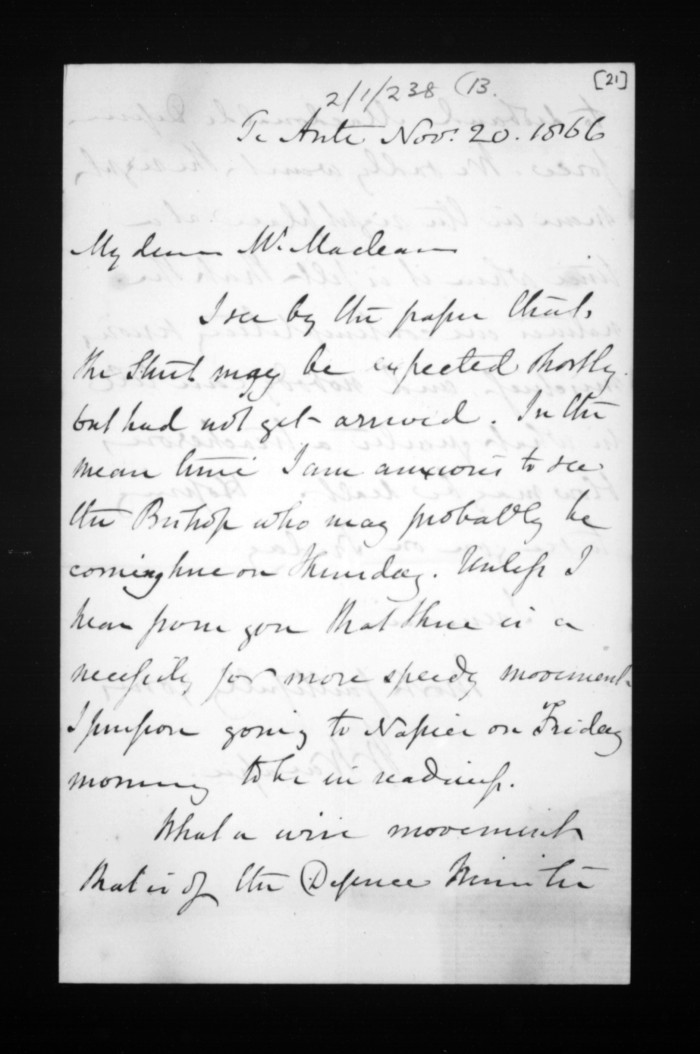 [21]
2/1/238 (B.
Te Aute Nov: 20. 1866
My dear Mr. Maclean
I see by the paper that
the Sturt may be expected shortly
but had not yet arrived. In the
mean time I am anxious to see
the Bishop who may probably be
coming here on Thursday. Unless I
hear from you that there is a
necessity for more speedy movement
I purpose going to Napier on Friday
morning to be in readiness.
What a wise movement
that is of the Defence Minister